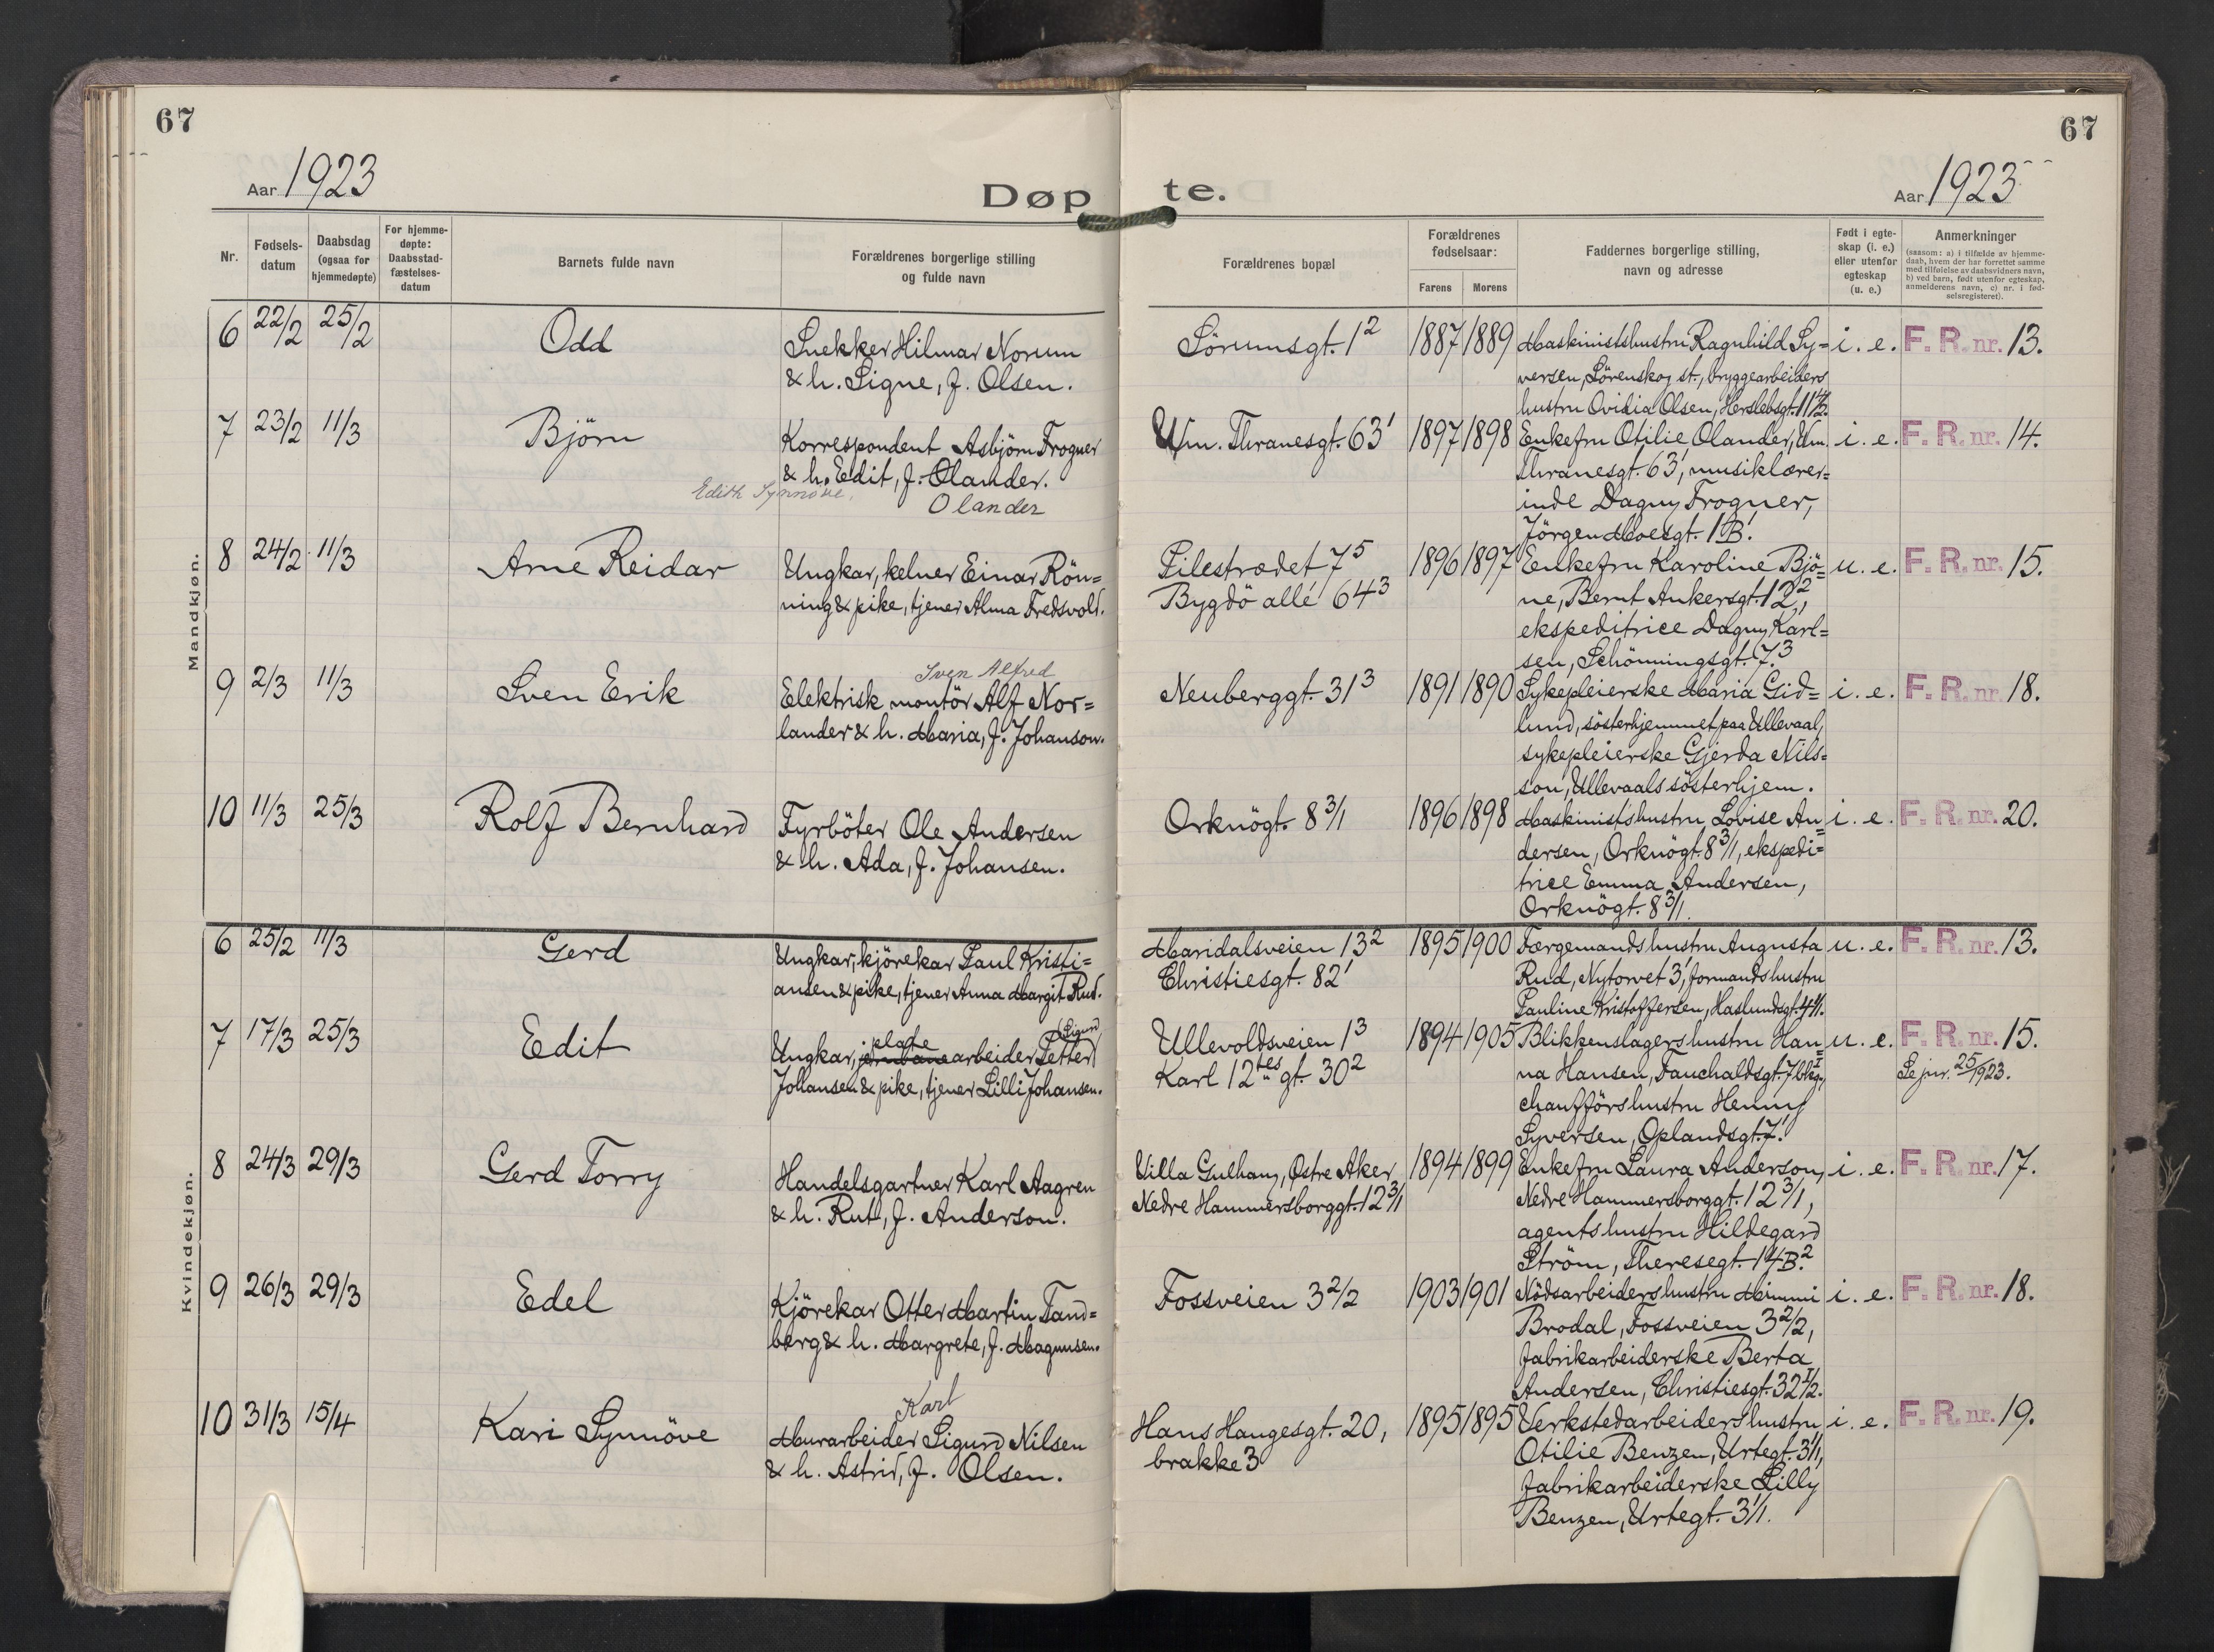 67
67
Aar 1923
Døpte.
Aar 1923
Nr.
Fødsels-
datum
Daabsdag
(ogsaa for
hjemmedøpte)
For hjemme-
døpte:
Daabsstad-
fæstelses-
datum
Barnets fulde navn
Forældrenes borgerlige stilling
og fulde navn
Forældrenes bopæl
Forældrenes
fødselsaar:
Farens
Morens
Faddernes borgerlige stilling,
navn og adresse
Født i egte-
skap (i. e.)
eller utenfor
egteskap
(u. e.)
Anmerkninger
(saasom: a) i tilfælde av hjemme-
daab, hvem der har forrettet samme
med tilføielse av daabsvidners navn,
b) ved barn, født utenfor egteskap,
anmelderens navn, c) nr. i fød-
selsregisteret).
Mandkjøn.
6 22/2 25/2 Odd
Snekker Hilmar Norum
& h. Signe, f. Olsen.
Sörumsgt. 1²
1887 1889
Maskinistshustru Ragnhild Sy=
versen, Sörenskog st., bryggearbeiders
hustru Ovidia Olsen, Herslebsgt. 11
i. e. F. R. nr. 13.
7 23/2 11/3 Björn
Korrespondent Asbjörn Frogner
& h. Edit, f. Olander.
Edith Synnöve,
Olander
Vm. Thranesgt. 63'
1897 1898
Enkefru Otilie Olander, Vm.
Thranesgt. 63', musiklærer=
inde Dagny Frogner,
Jörgen Moesgt. 1B'.
i. e. F. R. nr. 14.
8 24/2 11/3 Arne Reidar
Ungkar, kelner Einar Rön=
ning & pike, tjener Alma Fredsvold.
Pilestrædet 7⁵
Bygdö allé 64³
1896 1897
Enkefru Karoline Bjö=
ne, Bernt Ankersgt. 12²,
ekspeditrice Dagny Karl=
sen, Schönningsgt. 7.³
u. e. F. R. nr. 15.
9 2/3 11/3 Sven Erik
Sven Alfred
Elektrisk montör Alf Nor=
lander & h. Maria, f. Johanson.
Neuberggt. 31³
1891 1890
Sykepleierske Maria Gid=
lund, sösterhjemmet paa Ullevaal,
sykepleierske Gjerda Nils=
son, Ullevaals sösterhjem.
i. e. F. R. nr. 18.
10 11/3 25/3 Rolf Bernhard
Fyrböter Ole Andersen
& h. Ada, f. Johansen.
Orknögt. 8 3/1
1896 1898
Maskinistshustru Lovise An=
dersen, Orknögt. 8 3/1, ekspedi=
trice Emma Andersen,
Orknögt. 8 3/1.
i. e. F. R. nr. 20.
Kvindekjøn.
6 25/2 11/3 Gerd
Ungkar, kjörekar Paul Kristi=
ansen & pike, tjener Anna Margit Rud.
Maridalsveien 13²
Christiesgt. 82'
1895 1900
Færgemandshustru Augusta
Rud, Nytorvet 3', formandshustru
Pauline Kristoffersen, Haslundsgt.
u. e. F. R. nr. 13.
7 17/3 25/3 Edit
plate (Sigurd)
Ungkar, jernbanearbeider Petter
Johansen & pike, tjener Lilli Johansen.
Ullevoldsveien 1³
Karl 12tes gt. 30²
1894 1905
Blikkenslagershustru Han=
na Hansen, Fauchaldsgt. 7
chaufförshustru Henny
Syversen, Oplandsgt. 7.'
u. e. F. R. nr. 15.
Se jnr. 25/1923.
8 24/3 29/3 Gerd Torry
Handelsgartner Karl Aagren
& h. Rut, f. Anderson.
Villa Gulhaug, Østre Aker
Nedre Hammersborggt. 12 3/1
1894 1899
Enkefru Laura Anderson,
Nedre Hammersborggt. 12 3/1,
agentshustru Hildegard
Ström, Theresegt. 14B.²
i. e. F. R. nr. 17.
9 26/3 29/3 Edel
Kjörekar Otter Martin Tand=
berg & h. Margrete, f. Magnusen.
Fossveien 3 2/2
1903 1901
Nödsarbeidershustru Mimmi
Brodal, Fossveien 3 2/2,
fabrikarbeiderske Berta
Andersen, Christiesgt. 32 1/2.
i. e. F. R. nr. 18.
10 31/3 15/4 Kari Synnöve
Karl
Murarbeider Sigurd Nilsen
& h. Astrid, f. Olsen.
Hans Haugesgt. 20,
brakke 3
1895 1895
Verkstedarbeidershustru
Otilie Benzen, Urtegt. 3 1/1,
fabrikarbeiderske Lilly
Benzen, Urtegt. 3 1/1.
i. e. F. R. nr. 19.